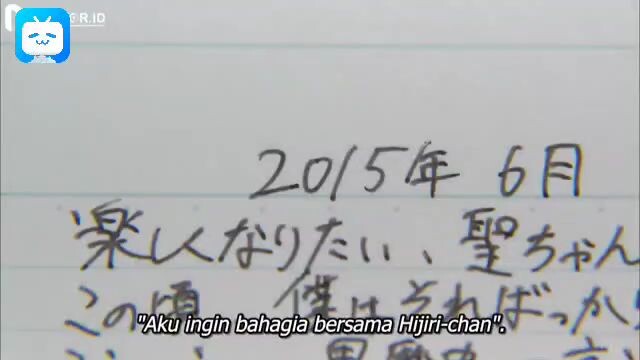 G R.ID
2015年 6月
楽しくなりたい、聖ちゃん
この頃 僕はそればっか
"Aku ingin bahagia bersama Hijiri-chan".